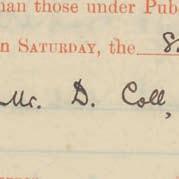 han those under Pub
n SATURDAY, the 8
Mr. D. Coll,